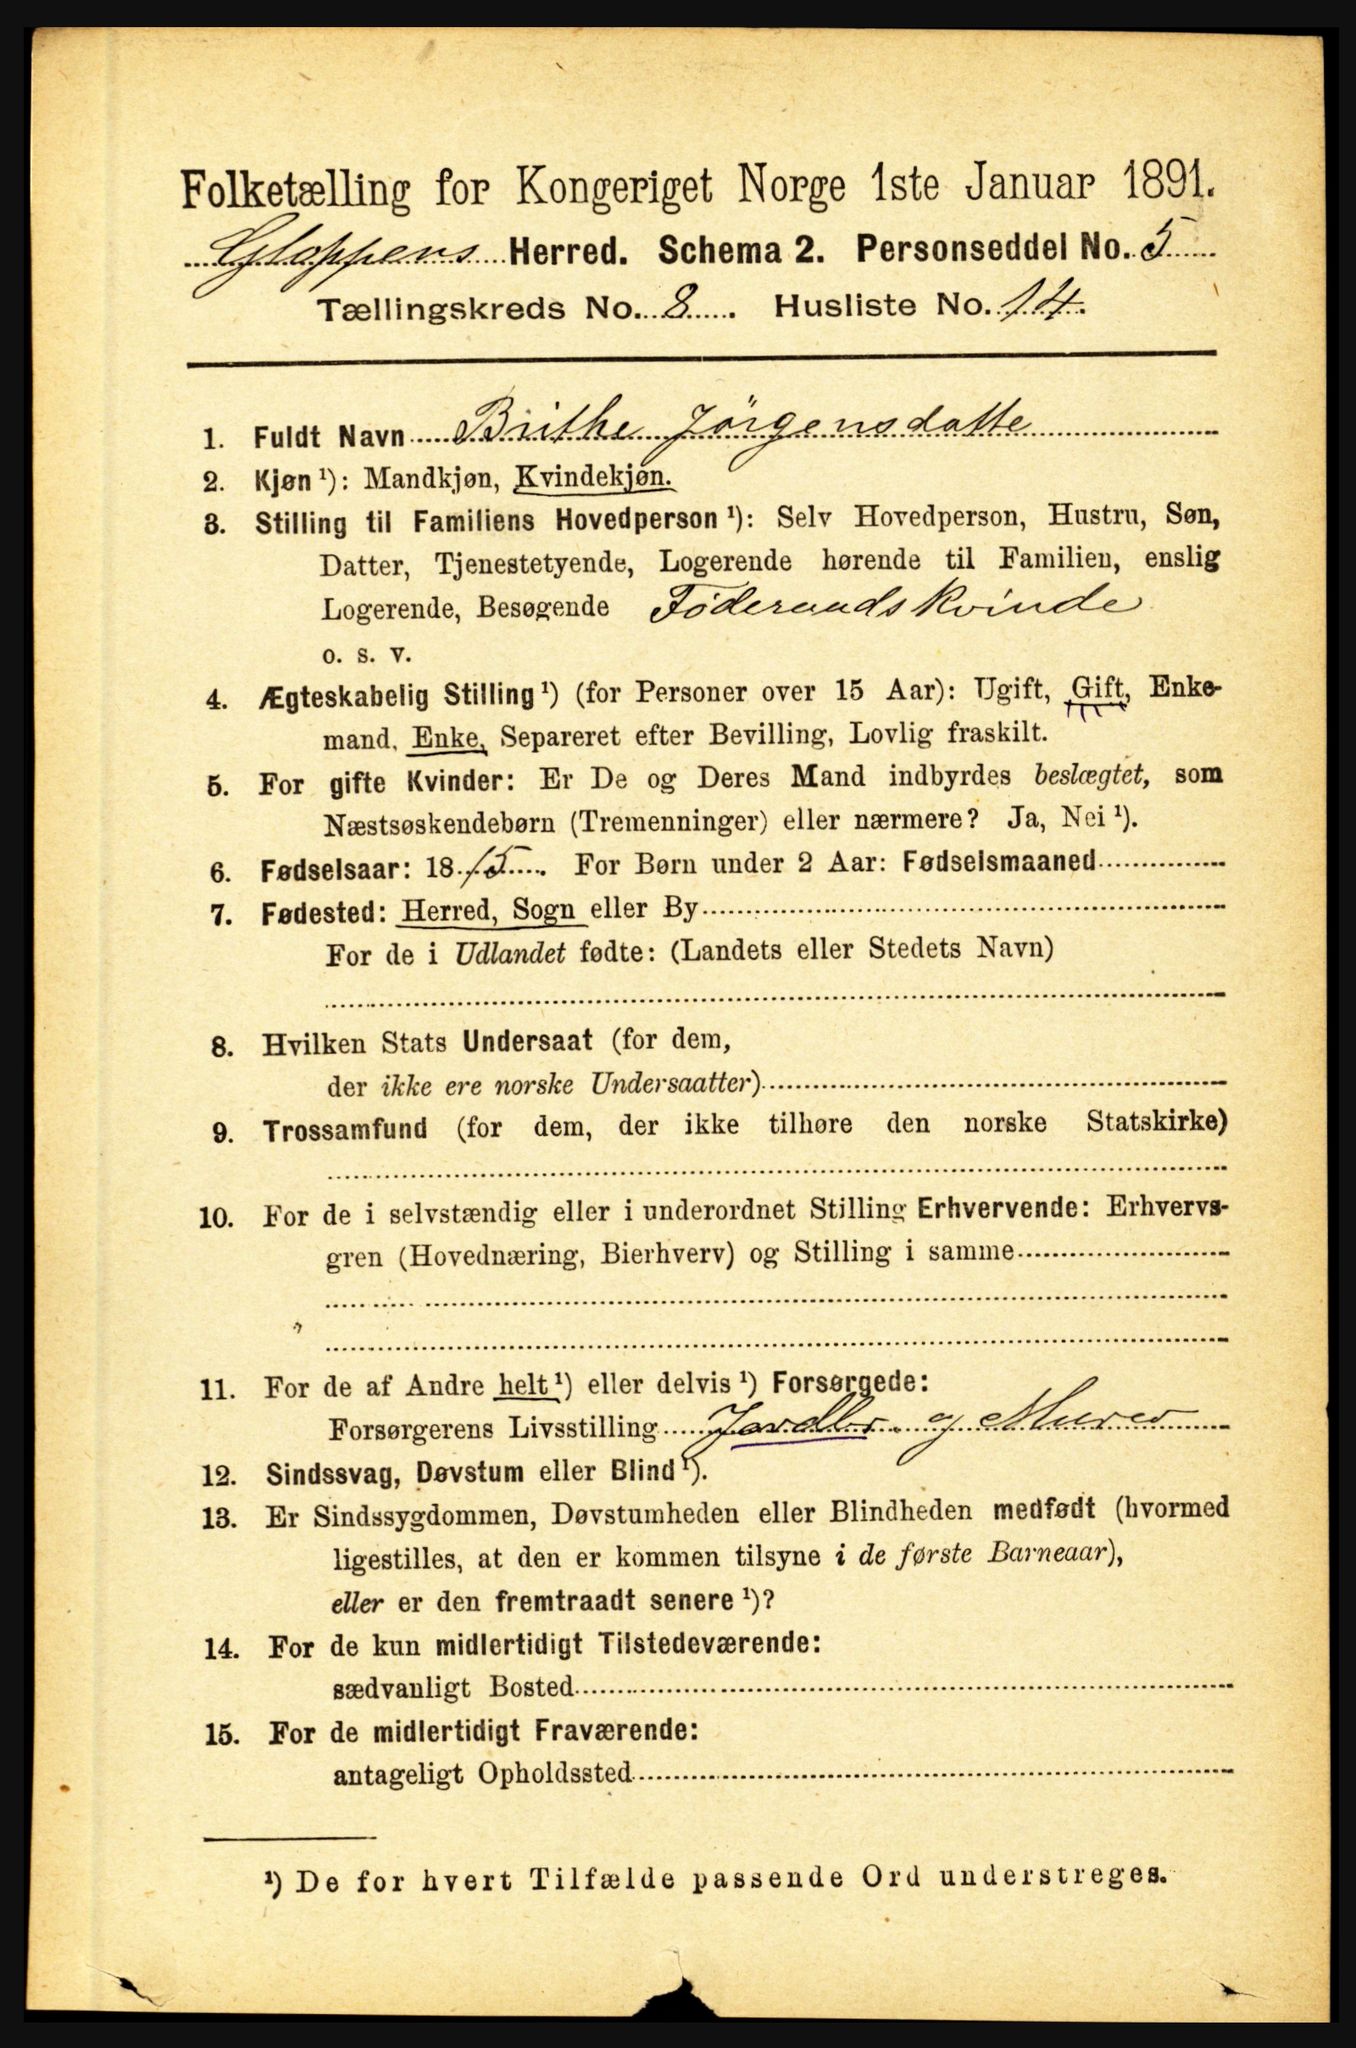 Folketælling for Kongeriget Norge 1ste Januar 1891.
Gloppens Herred. Schema 2. Personseddel No. 5
Tællingskreds No. 8. Husliste No. 14.
1. Fuldt Navn Brithe Jörgensdatte
2. Kjøn ¹): Mandkjøn, Kvindekjøn.
3. Stilling til Familiens Hovedperson ¹): Selv Hovedperson, Hustru, Søn,
Datter, Tjenestetyende, Logerende hørende til Familien, enslig
Logerende, Besøgende Föderaadskvinde
o. s. v.
4. Ægteskabelig Stilling ¹) (for Personer over 15 Aar): Ugift, Gift, Enke-
mand, Enke, Separeret efter Bevilling, Lovlig fraskilt.
5. For gifte Kvinder: Er De og Deres Mand indbyrdes beslægtet, som
Næstsøskendebørn (Tremenninger) eller nærmere? Ja, Nei ¹).
6. Fødselsaar: 1815. For Børn under 2 Aar: Fødselsmaaned
7. Fødested: Herred, Sogn eller By
For de i Udlandet fødte: (Landets eller Stedets Navn)
8. Hvilken Stats Undersaat (for dem,
der ikke ere norske Undersaatter)
9. Trossamfund (for dem, der ikke tilhøre den norske Statskirke)
10. For de i selvstændig eller i underordnet Stilling Erhvervende: Erhvervs-
gren (Hovednæring, Bierhverv) og Stilling i samme
11. For de af Andre helt ¹) eller delvis ¹) Forsørgede:
Forsørgerens Livsstilling Jordbr. og Murer
12. Sindssvag, Døvstum eller Blind ¹).
13. Er Sindssygdommen, Døvstumheden eller Blindheden medfødt (hvormed
ligestilles, at den er kommen tilsyne i de første Barneaar),
eller er den fremtraadt senere ¹)?
14. For de kun midlertidigt Tilstedeværende:
sædvanligt Bosted
15. For de midlertidigt Fraværende:
antageligt Opholdssted
¹) De for hvert Tilfælde passende Ord understreges.